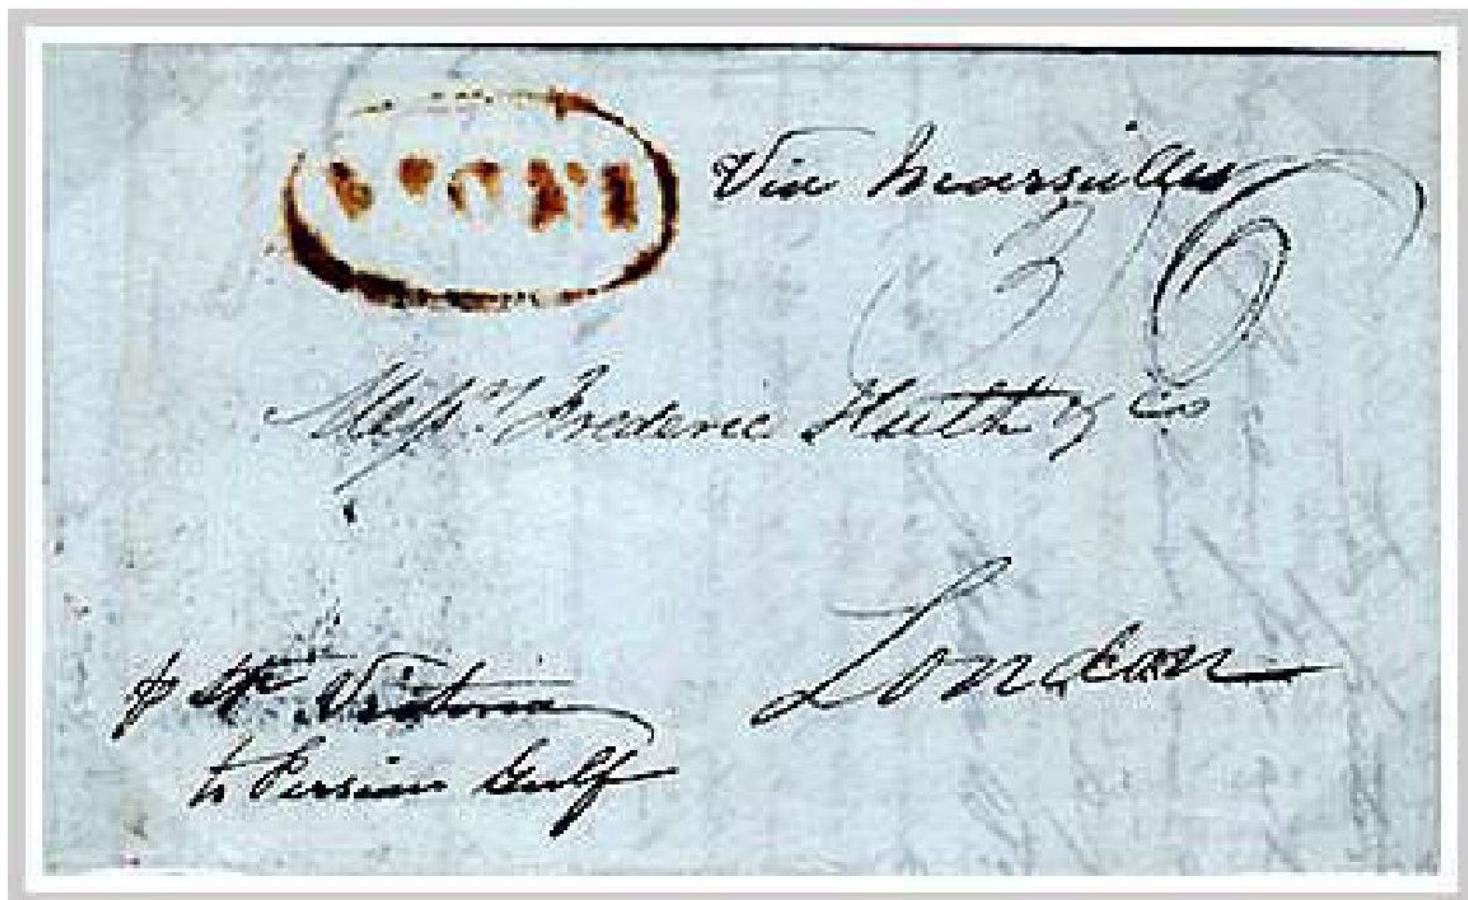 Via Marseilles
3/6
Messrs Frederic Huth & Co
London
p Str Victoria
to Persian Gulf